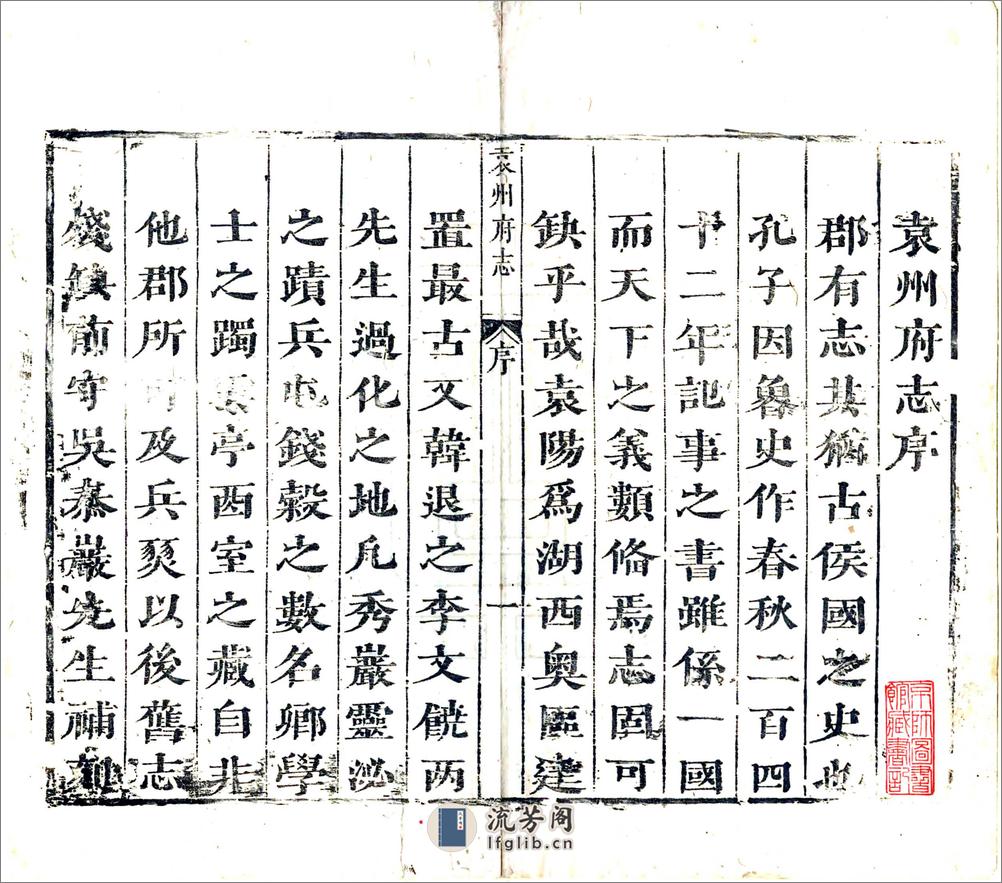 袁州府志序
郡有志其猶古侯國之史也
孔子因魯史作春秋二百四
十二年記事之書雖係一國
而天下之義類脩焉志固可
缺乎哉袁陽爲湖西奧區建
袁州府志
序
一
置最古又韓退之李文饒两
先生過化之地凡秀巖靈泌
之蹟兵屯錢糓之數名卿學
士之躅雲亭酉室之藏自非
他郡所可及兵燹以後舊志
殘缺前守吳恭巖先生補刻
京師圖書
館藏書記
流芳阁
lfglib.cn